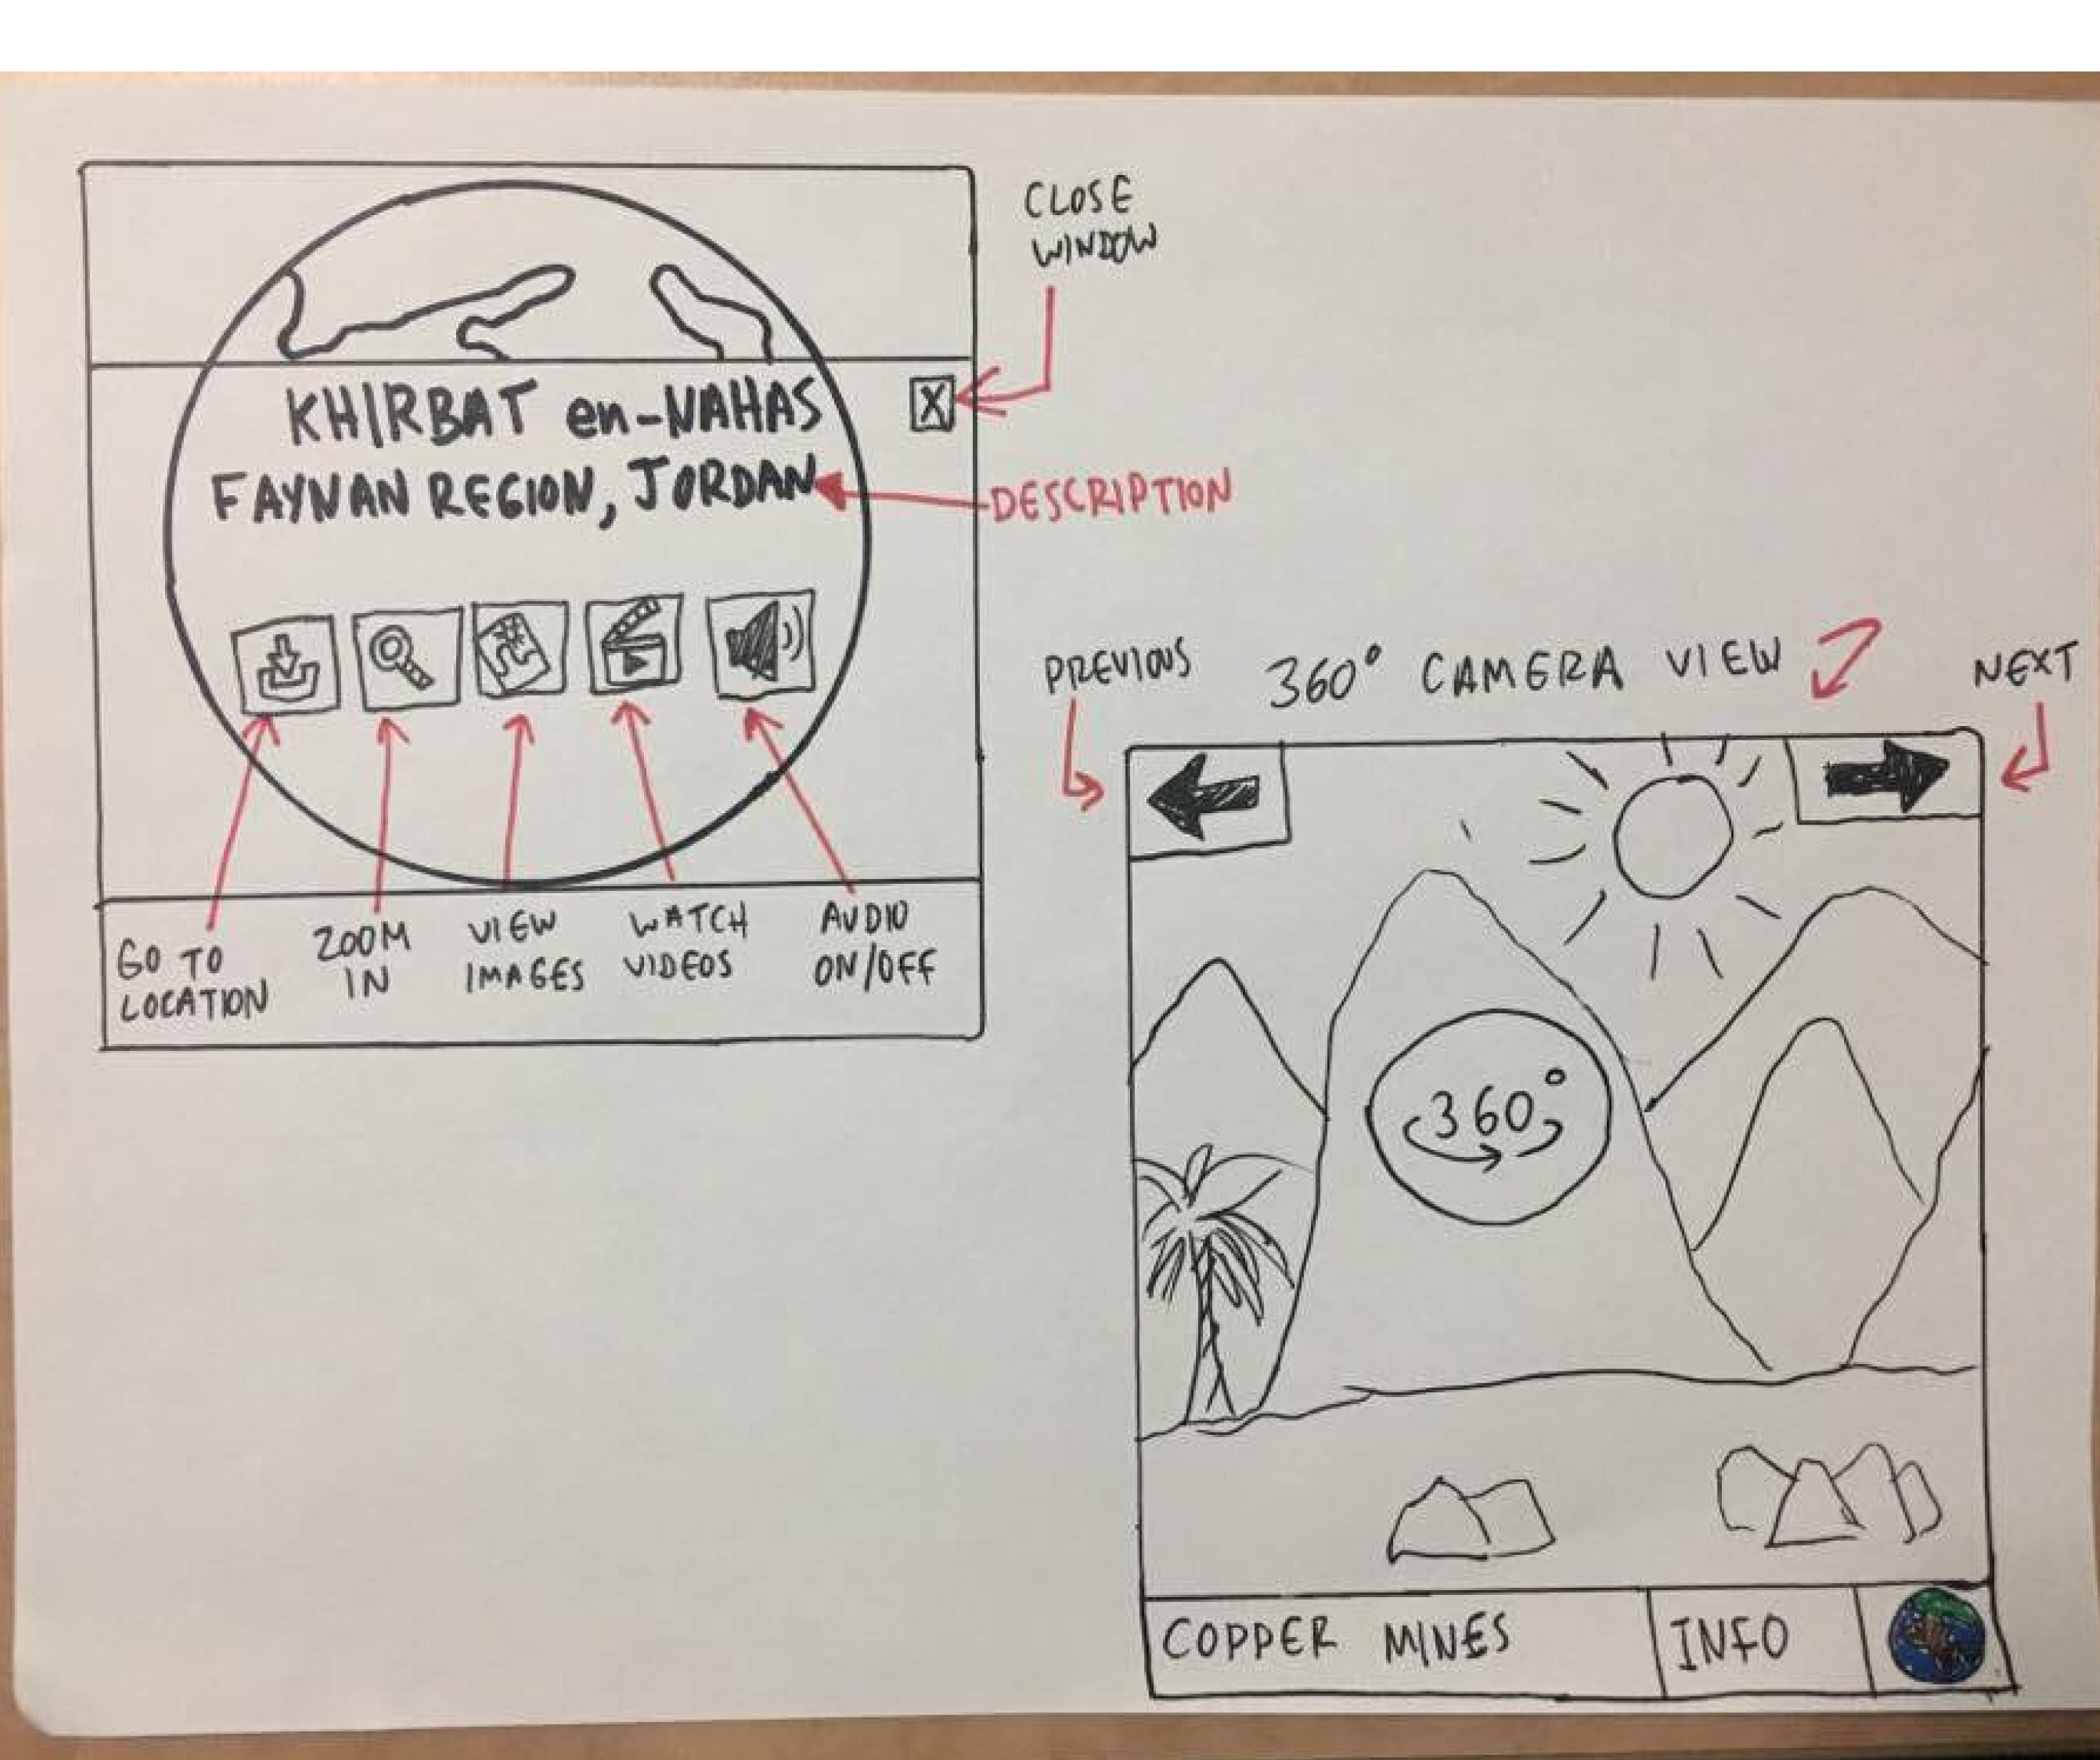 CLOSE
WINDOW
KHIRBAT en-NAHAS
X
FAYNAN REGION, JORDAN
DESCRIPTION
GO TO
LOCATION
ZOOM
IN
VIEW
IMAGES
WATCH
VIDEOS
AUDIO
ON/OFF
PREVIOUS
360° CAMERA VIEW
NEXT
360°
COPPER MINES
INFO